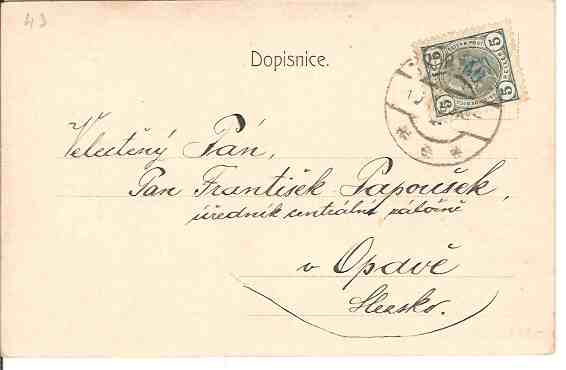 43
Dopisnice.
5 5
5 5
Velectěný Pán,
Pan František Papoušek,
úředník centrální záložně
v Opavě
Slezsko.